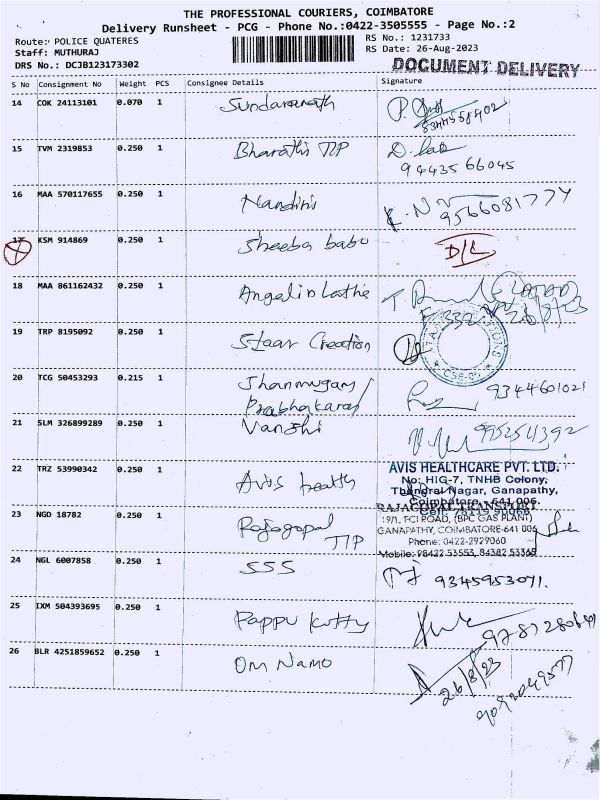 THE PROFESSIONAL COURIERS, COIMBATORE
Delivery Runsheet - PCG - Phone No.:0422-3505555 - Page No.:2
Route: POLICE QUATERES RS No.: 1231733
Staff: MUTHURAJ RS Date: 26-Aug-2023
DRS No.: DCJB123173302 DOCUMENT DELIVERY
S No Consignment No Weight PCS Consignee Details Signature
14 COK 24113101 0.070 1
15 TVM 2319853 0.250 1 Bharathi TIP
9443566045
16 MAA 570117655 0.250 1 Nandini
K. N 9566081774
17 KSM 914869 0.250 1 Sheeba babu D/L
18 MAA 861162432 0.250 1 Angelin Lathie
19 TRP 8195092 0.250 1 Staar Creation
20 TCG 50453293 0.215 1 Shanmugam / 9344601021
Prabhakaran
21 SLM 326899289 0.250 1 Vanshi
22 TRZ 53990342 0.250 1 Avis health AVIS HEALTHCARE PVT. LTD.
No: HIG-7, TNHB Colony,
Thangral Nagar, Ganapathy,
Coimbatore - 641 006.
23 NGD 18782 0.250 1 Rajagopal TIP RAJAGOPAL TRANSPORT
19/1, FCI ROAD, (BPC GAS PLANT)
GANAPATHY, COIMBATORE-641 006
Phone: 0422-2929060
Mobile: 98422 53553, 84382 53369
24 NGL 6007858 0.250 1 SSS 9345953071.
25 IXM 504393695 0.250 1 Pappu kutty
26 BLR 4251859652 0.250 1 Om Namo
26/8/23